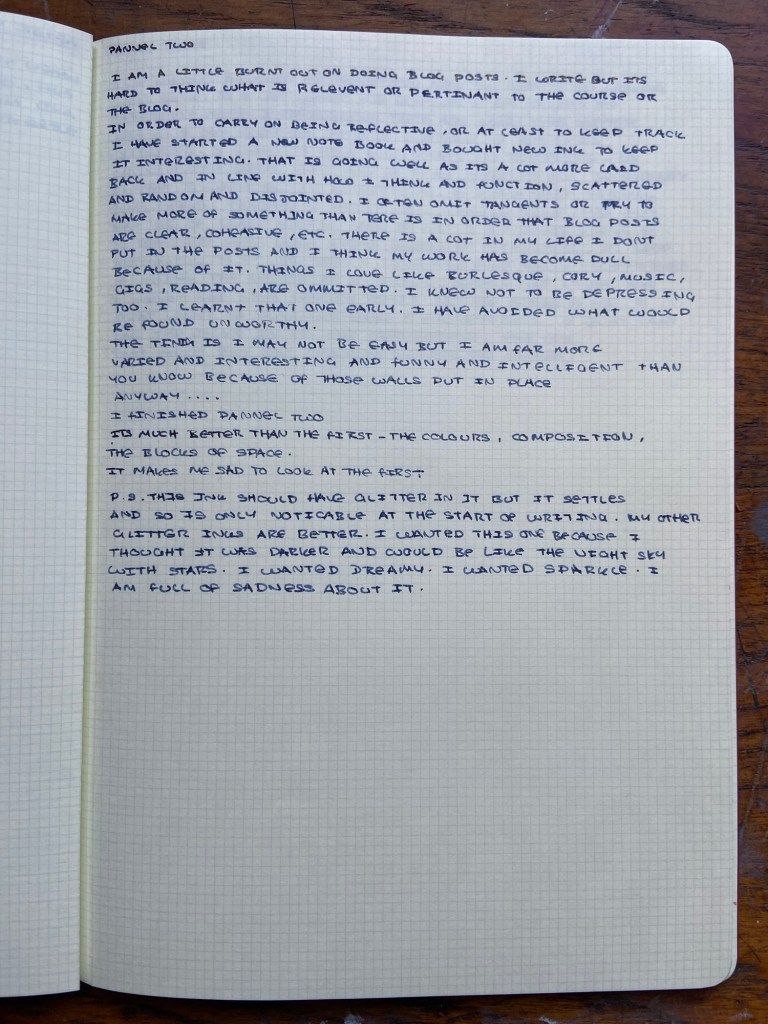 PANNEL TWO
I AM A LITTLE BURNT OUT ON DOING BLOG POSTS. I WRITE BUT ITS
HARD TO THINK WHAT IS RELEVENT OR PERTINANT TO THE COURSE OR
THE BLOG.
IN ORDER TO CARRY ON BEING REFLECTIVE, OR AT LEAST TO KEEP TRACK
I HAVE STARTED A NEW NOTE BOOK AND BOUGHT NEW INK TO KEEP
IT INTERESTING. THAT IS GOING WELL AS ITS A LOT MORE LAID
BACK AND IN LINE WITH HOW I THINK AND FUNCTION, SCATTERED
AND RANDOM AND DISJOINTED. I OFTEN OMIT TANGENTS OR TRY TO
MAKE MORE OF SOMETHING THAN TERE IS IN ORDER THAT BLOG POSTS
ARE CLEAR, COHEASIVE, ETC. THERE IS A LOT IN MY LIFE I DONT
PUT IN THE POSTS AND I THINK MY WORK HAS BECOME DULL
BECAUSE OF IT. THINGS I LOVE LIKE BURLESQUE, CORY, MUSIC,
GIGS, READING, ARE OMMITTED. I KNEW NOT TO BE DEPRESSING
TOO. I LEARNT THAT ONE EARLY. I HAVE AVOIDED WHAT WOULD
BE FOUND UNWORTHY.
THE IS I MAY NOT BE EASY BUT I AM FAR MORE
VARIED AND INTERESTING AND FUNNY AND THAN
YOU KNOW BECAUSE OF THOSE WALLS PUT IN PLACE
ANYWAY ....
I FINISHED PANNEL TWO
ITS MUCH BETTER THAN THE FIRST - THE COLOURS, COMPOSITION,
THE BLOCKS OF SPACE.
IT MAKES ME SAD TO LOOK AT THE FIRST
P.S. THIS INK SHOULD HAVE GLITTER IN IT BUT IT SETTLES
AND SO IS ONLY NOTICABLE AT THE START OF WRITING. MY OTHER
GLITTER INKS ARE BETTER. I WANTED THIS ONE BECAUSE I
THOUGHT IT WAS DARKER AND WOULD BE LIKE THE NIGHT SKY
WITH STARS. I WANTED DREAMY. I WANTED SPARKLE. I
AM FULL OF SADNESS ABOUT IT.